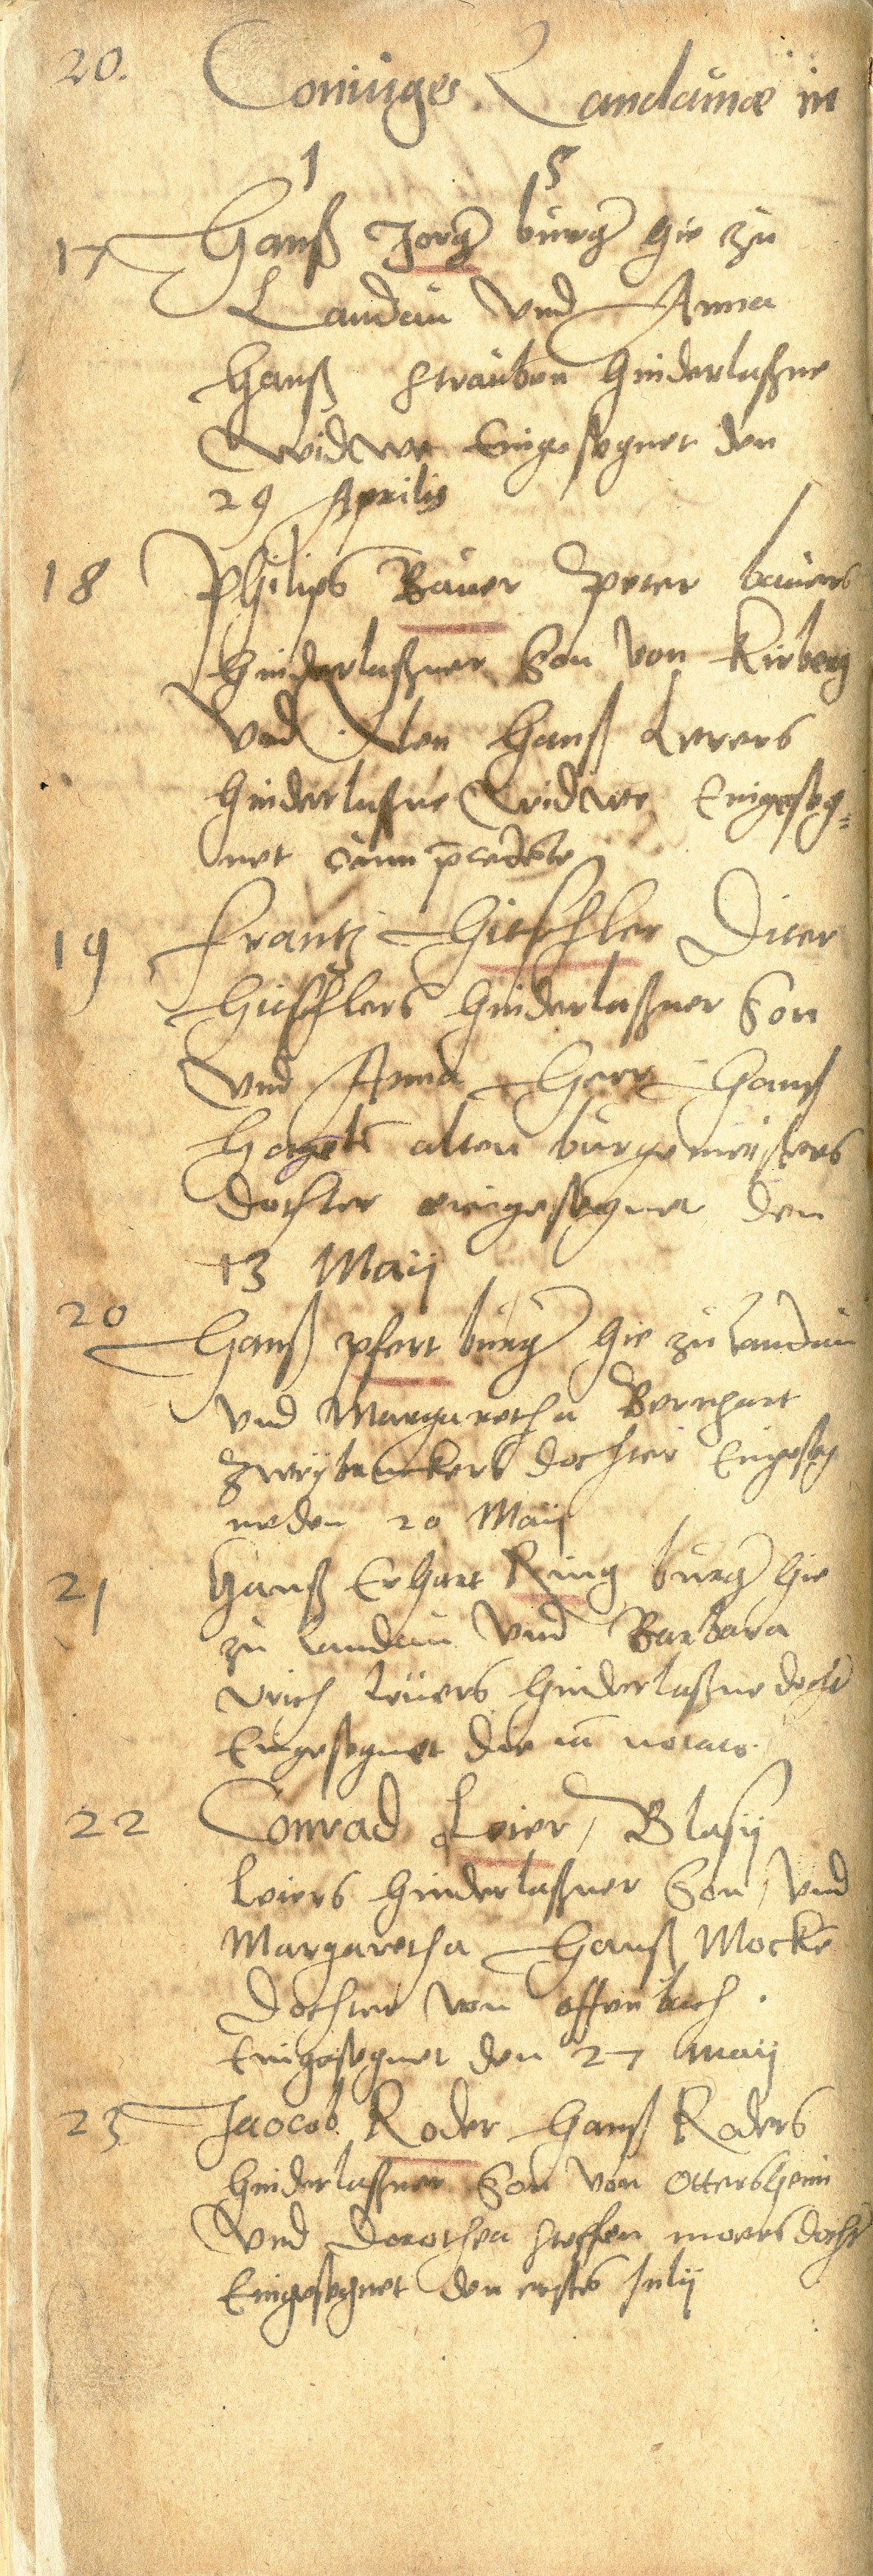 20. Coniuges Landauiæ in
1 5
17 Hanß Jorg burg hie zu
Landau vnd Anna
Hanß strauben hinderlaßne
Widwe Eingesegnet den
29 Aprilis
18 Philips Bauer Peter bauers
hinderlaßner Son von Kirberg
vnd Hanß
hinderlaßne Widwe Eingeseg=
net cum
19 Frantz Hitschler Diter
Hitschlers hinderlaßner Son
vnd Anna Herr Hans
alten burgemeisters
dochter eingesegnet den
13 Maij
20 Hanß Pfert burg hie zu Landau
vnd Margaretha Bernhart
Zweybruckers dochter Eingeseg
neden 20 Maij
21 Hanß Erhart Ring burg hie
zu Landau vnd Barbara
Vrich hinderlaßne docht
Eingesegnet die
22 Conrad Leier, Blasij
Leiers hinderlaßner Son, vnd
Margaretha Hanß Mocke
Dochter von offenbach.
Eingesegnet den 27 Maij
23 Jaocob Roder Hanß Roders
hinderlaßner Son von Ottersheim
vnd Dorothea steffen docht
Eingesegnet den erstes Julij